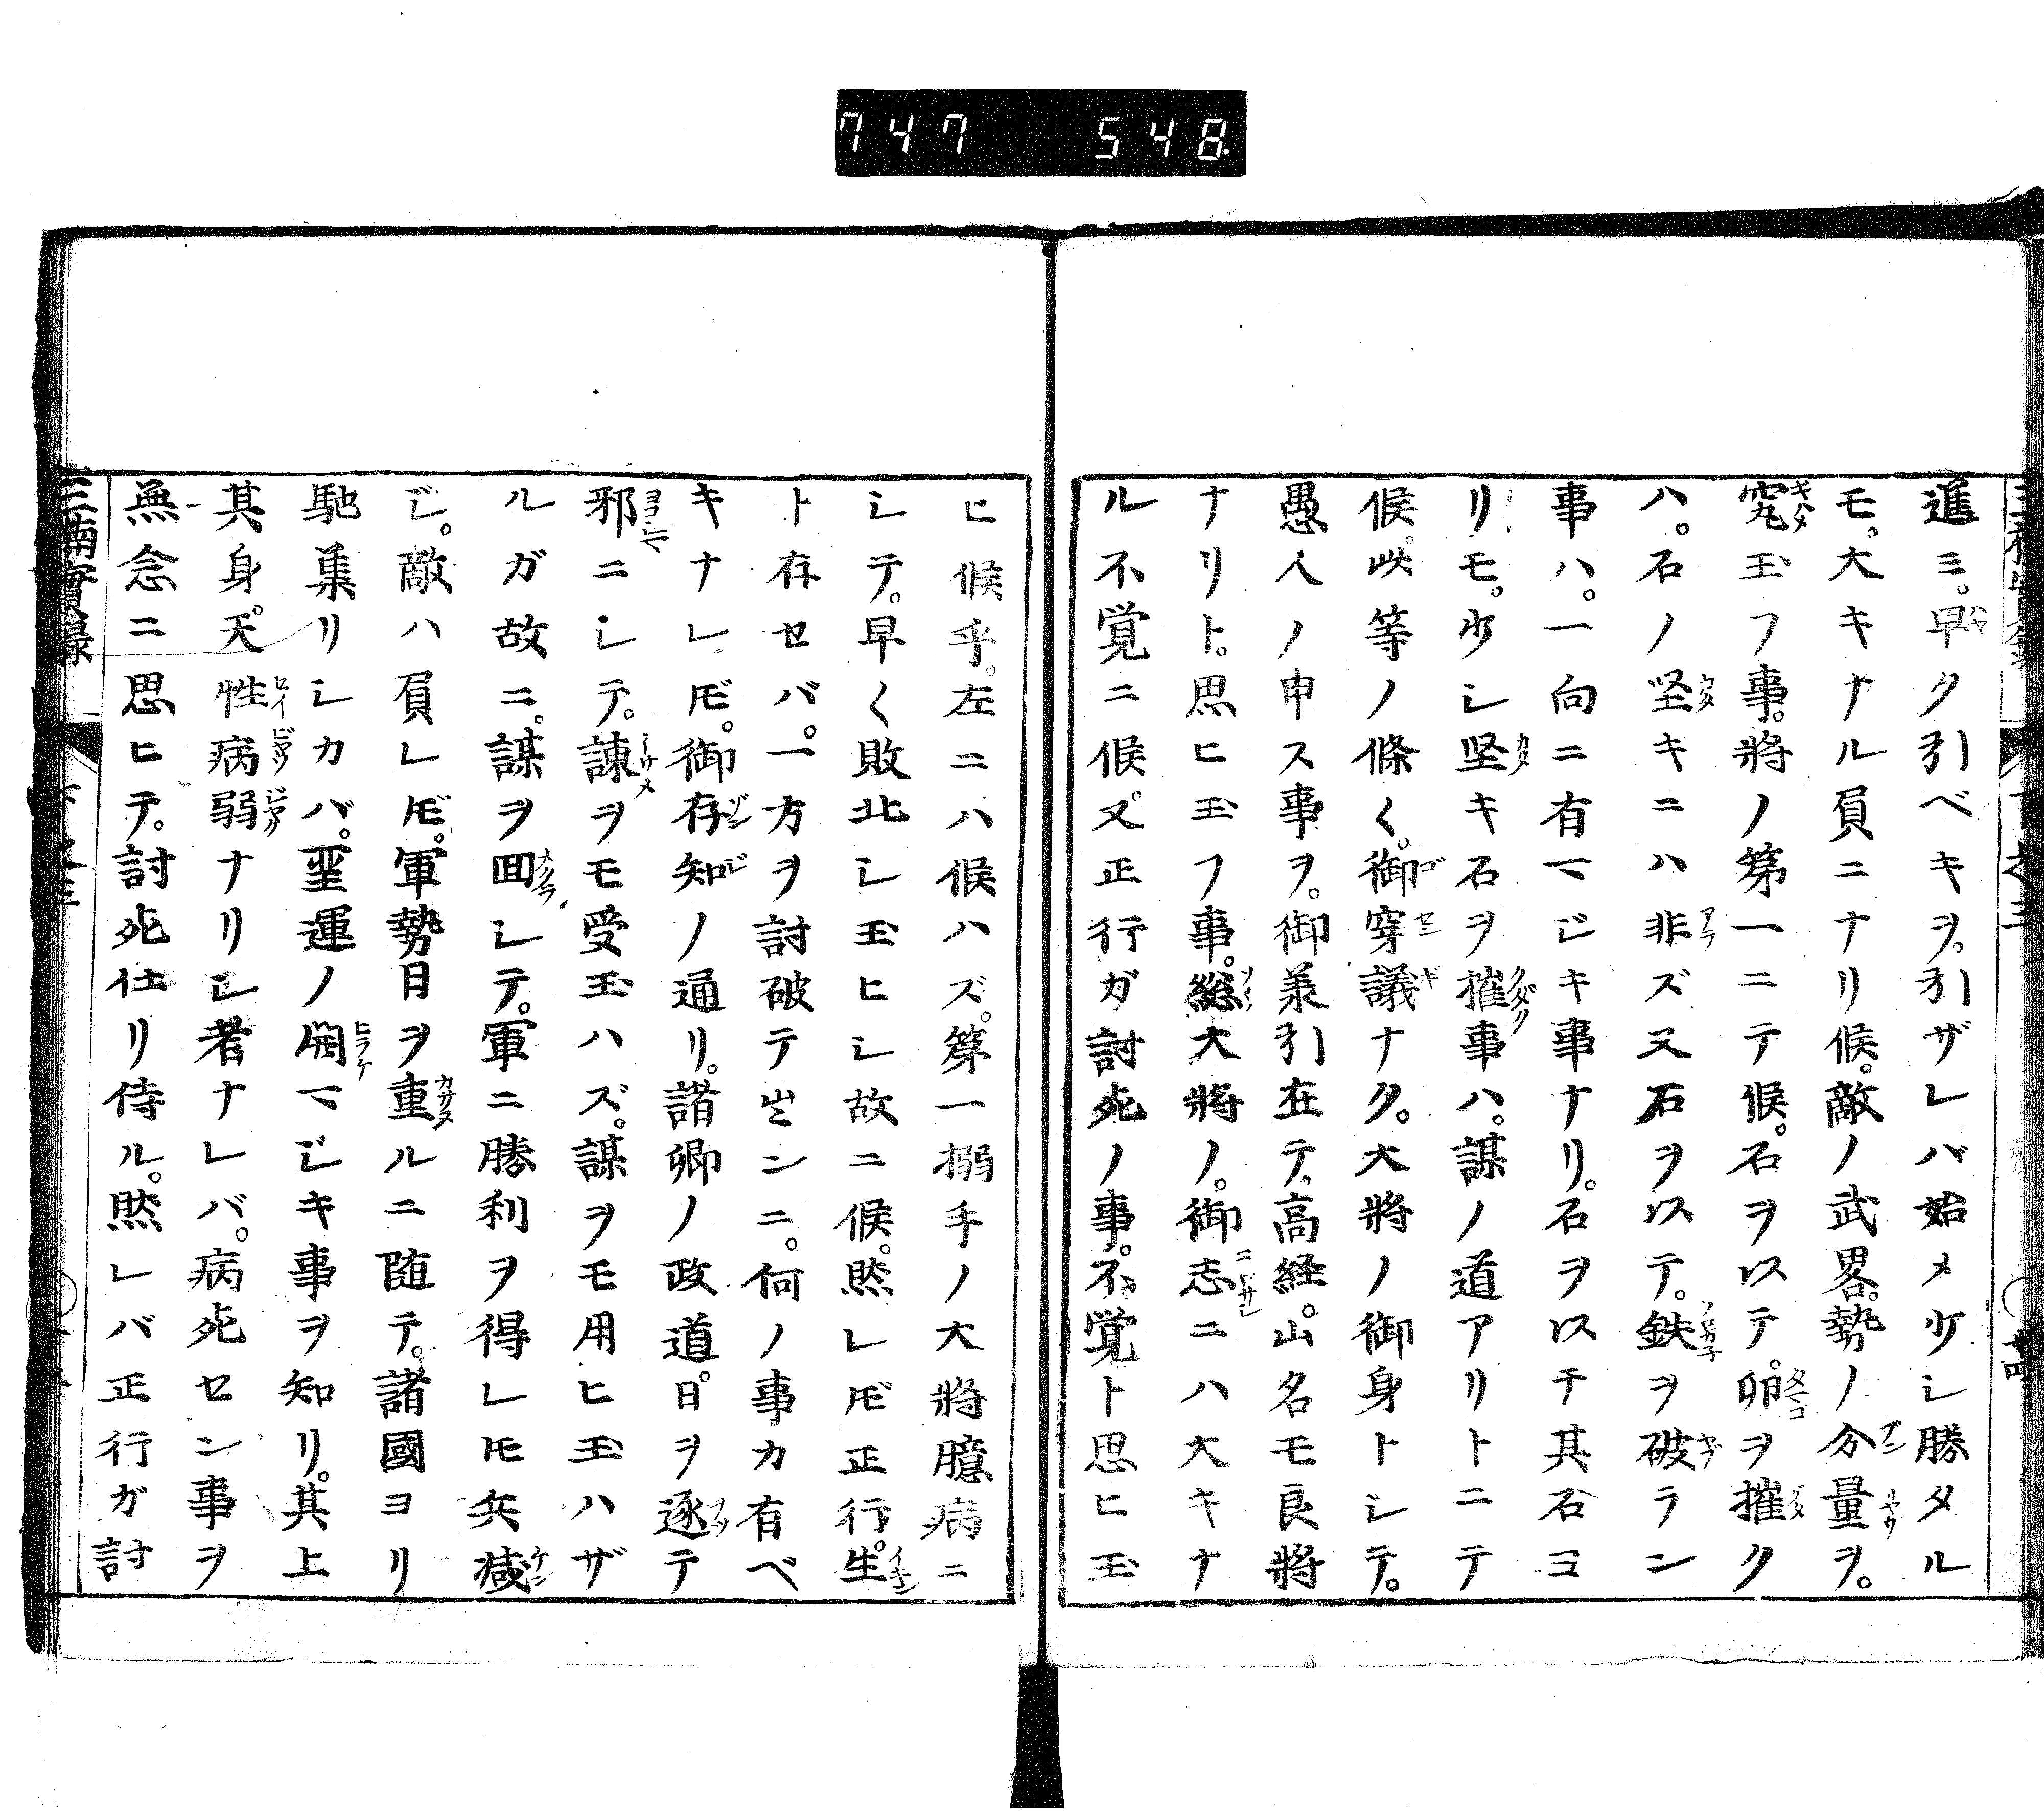 747 548
進ミ。早ク引ベキヲ。引ザレバ始メ少シ勝タル
モ。大キナル負ニナリ候。敵ノ武畧。勢ノ分量ヲ。
究玉フ事。將ノ第一ニテ候。石ヲ以テ。卵ヲ摧ク
ハ。石ノ坚キニハ非ズ又石ヲ以テ。鉄ヲ破ラン
事ハ。一向ニ有マジキ事ナリ。石ヲ以テ其石ヨ
リモ。少シ坚キ石ヲ摧事ハ。謀ノ道アリトニテ
候。此等ノ條〱。御穿議ナク。大將ノ御身トシテ。
愚人ノ申ス事ヲ。御兼引在テ。高経。山名モ良將
ナリト。思ヒ玉フ事。総大將ノ。御志ニハ大キナ
ル不覚ニ候。又正行ガ討死ノ事。不覚ト思ヒ玉
ヒ候乎。左ニハ候ハズ。第一搦手ノ大將臆病ニ
シテ。早〱敗北シ玉ヒシ故ニ候。然レ𪜈正行。生
ト存セバ。一方ヲ討破テ出ンニ。何ノ事カ有ベ
キナレ𪜈。御存知ノ通リ。諸卿ノ政道。日ヲ逐テ
邪ニシテ。諌ヲモ受玉ハズ。謀ヲモ用ヒ玉ハザ
ルガ故ニ。謀ヲ囬シテ。軍ニ勝利ヲ得レ𪜈兵減
ジ。敵ハ負レ𪜈。軍勢日ヲ重ルニ随テ。諸國ヨリ
馳集リシカバ。聖運ノ開マジキ事ヲ知リ。其上
其身。天性病弱ナリシ者ナレバ。病死セン事ヲ
無念ニ思ヒテ。討死仕リ侍ル。然レバ正行ガ討
三楠實録